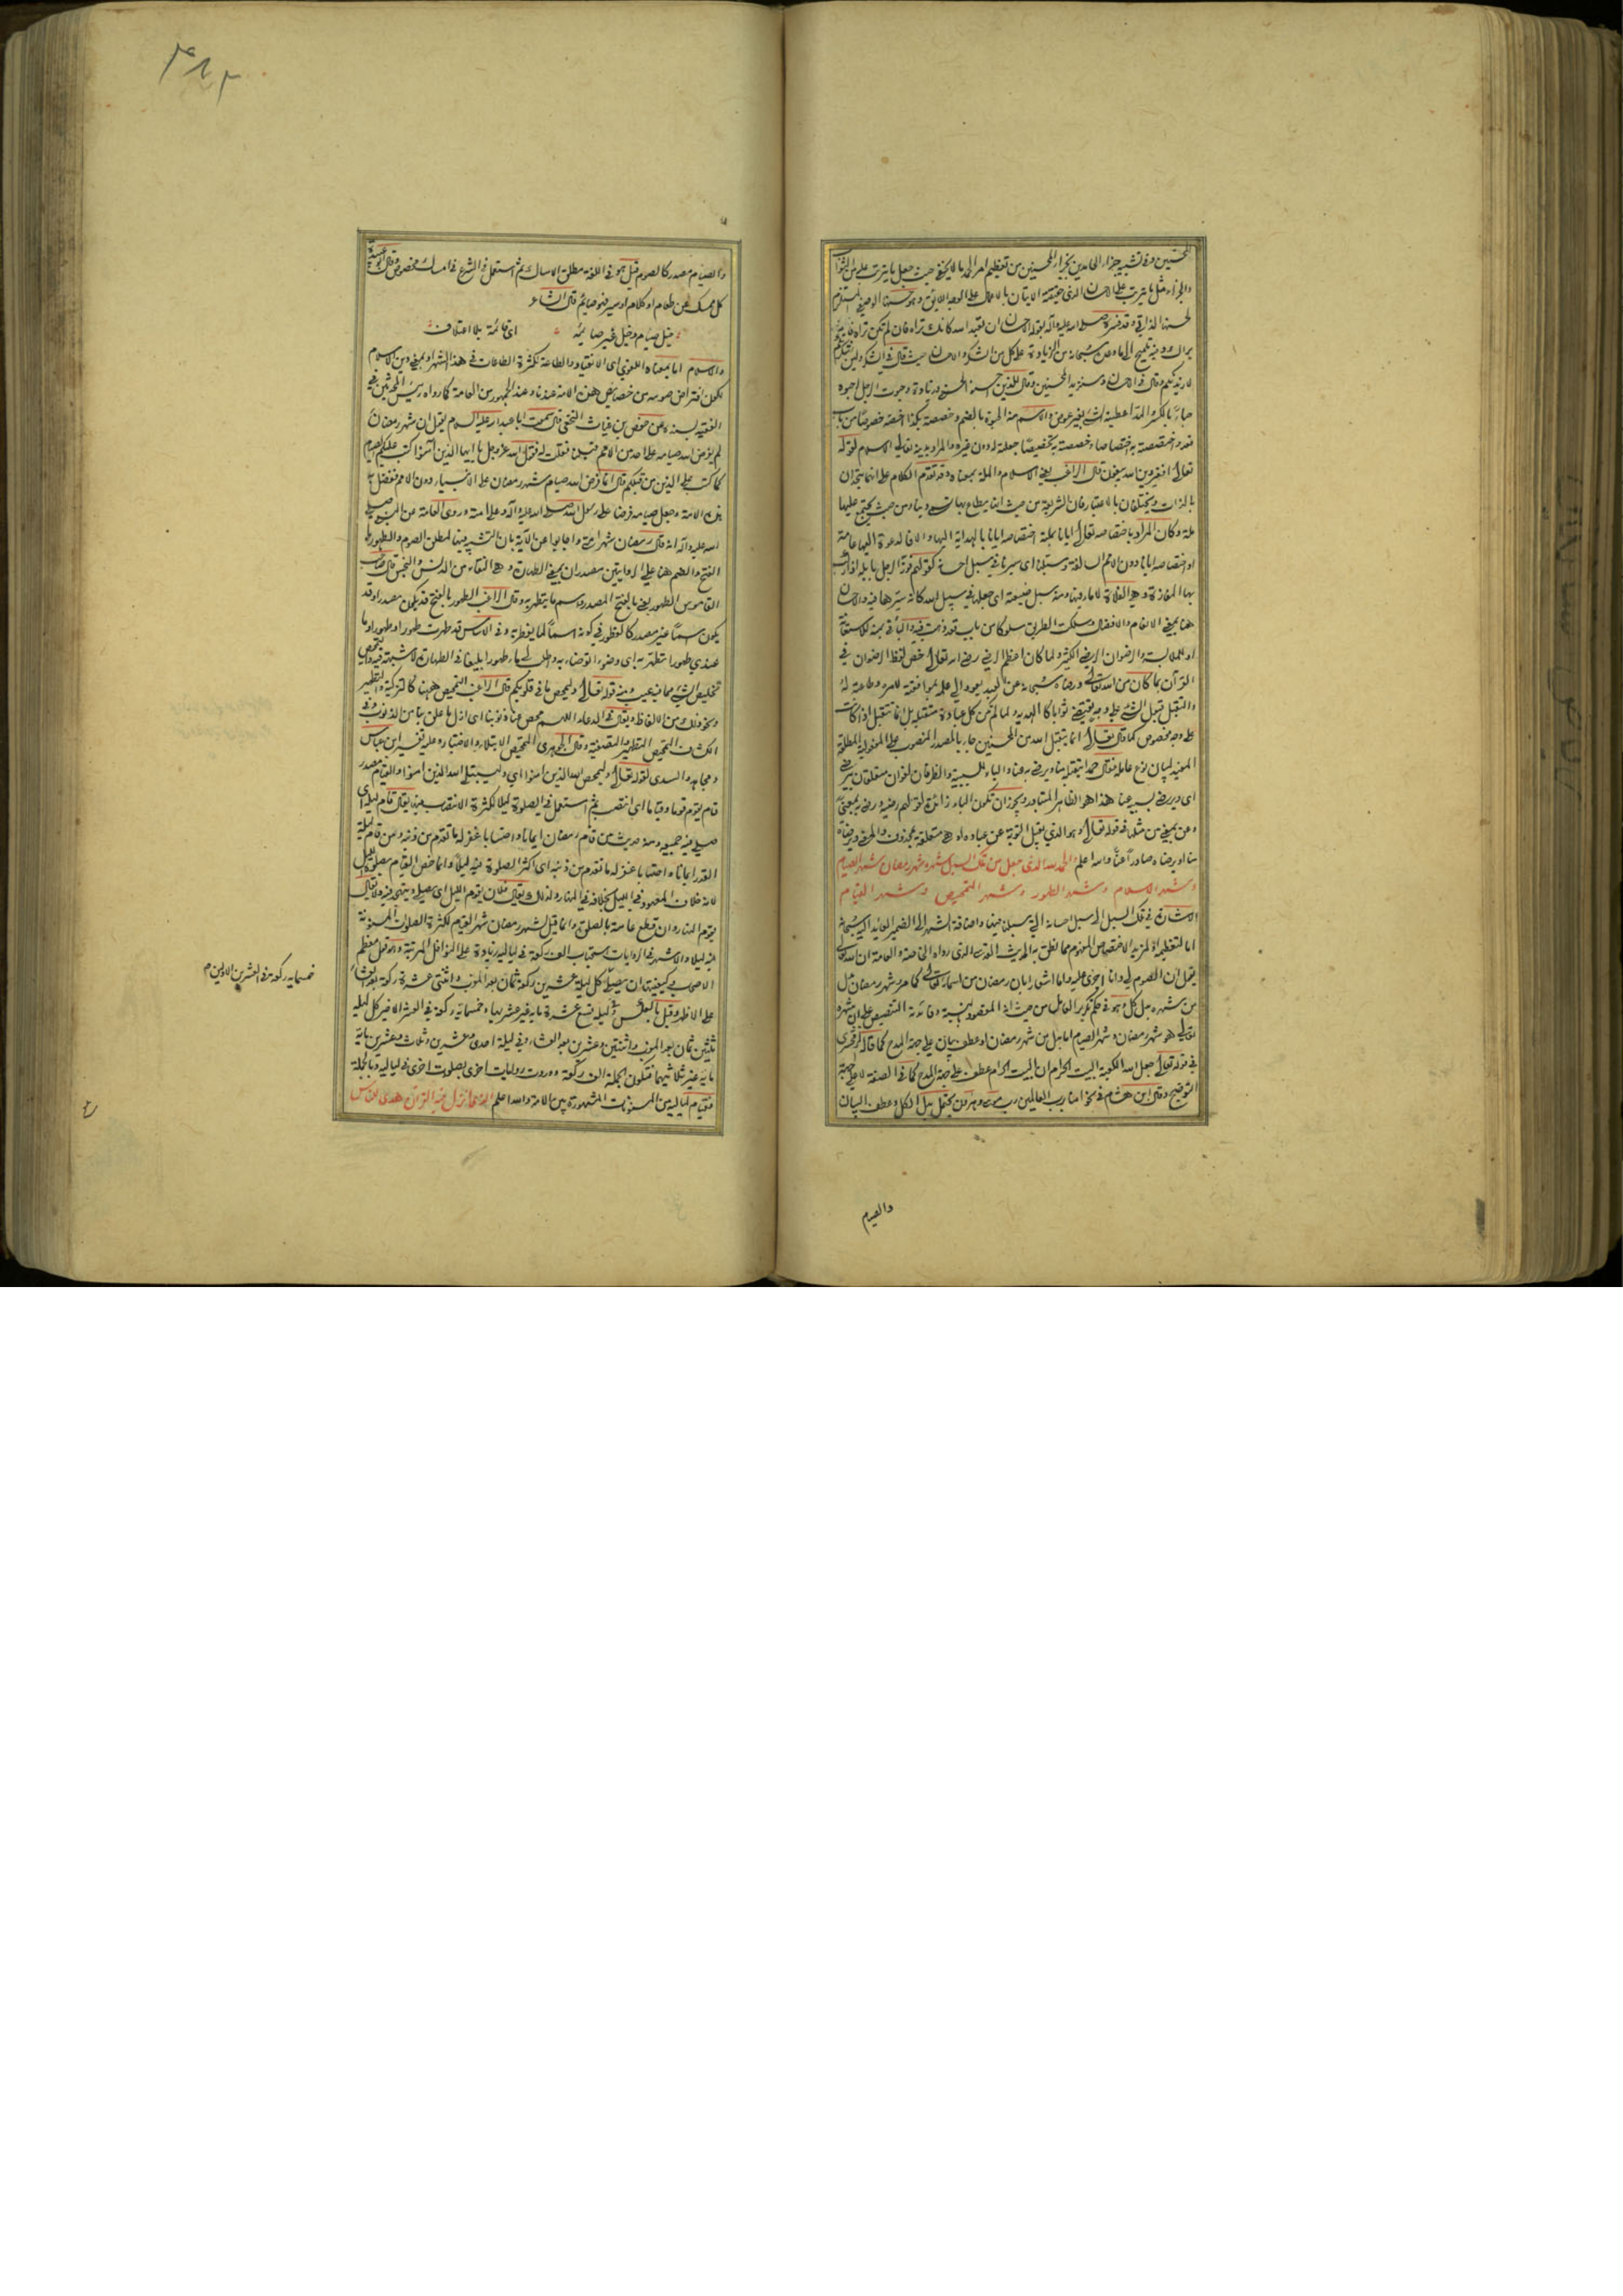 المحسنين وفي تشبيه جزاء الحامدين بجزاء المحسنين من تعظيم امر الحمد ما لا يخفى حيث جعل ما يترتب عليه من الثواب
والجزاء مثل ما يترتب على الاحسان الذي حقيقته الاتيان بالاعمال على الوجه اللائق وهو حسنها الوصفي المستلزم
لحسنها الذاتي وقد فسره صلى الله عليه وآله بقوله الاحسان ان تعبد الله كانك تراه فان لم تكن تراه فانه
يراك وفيه تلميح الى ما وعد سبحانه من الزيادة على كل من الشكر والاحسان حيث قال في الشكر ولئن شكرتم
لازيدنكم وقال في الاحسان وسنزيد المحسنين وقال للذين احسنوا الحسنى وزيادة وحبوت الرجل احبوه
حباء بالكسر والمد اعطيته الشيء بغير عوض والاسم منه الحبوة بالضم وخصصته بكذا اخصه خصوصا من باب
قعد واختصصته به اختصاصا وخصصته به تخصيصا جعلته له دون غيره والمراد بدينه تعالى الاسلام لقوله
تعالى افغير دين الله يبغون قال الراغب يعني الاسلام والملة بمعناه وقد تقدم الكلام على انهما يتحدان
بالذات ويختلفان بالاعتبار فان الشريعة من حيث انها يطاع بها تسمى دينا ومن حيث يجتمع عليها
ملة وكان المراد باختصاصه تعالى ايانا بملته اختصاصه ايانا بالهداية اليها والا فالدعوة اليها عامة
او اختصاصه ايانا دون الامم السالفة وسبلنا اي سيرنا في سبل احسانه كقولهم فوز الرجل بابله اذا ركب
بها المفازة وهي الفلاة لا ماء فيها ومنه سبل ضيعته اي جعلها في سبيل الله كانه سيرها فيه والاحسان
هنا بمعنى الانعام والافضال وسلكت الطريق سلوكا من باب قعد ذهبت فيه والباء في بمنه للاستعانة
او للملابسة والرضوان الرضى الكثير ولما كان اعظم الرضى رضى الله تعالى خص لفظ الرضوان في
القرآن بما كان من الله تعالى ورضاه سبحانه عن العبد يعود الى علمه بموافقته لامره وطاعته له
والتقبل قبول الشيء على وجه يقتضي ثوابا كالهدية ولما لم تكن كل عبادة متقبلة بل انما تتقبل اذا كانت
على وجه مخصوص كما قال تعالى انما يتقبل الله من المتقين جاء بالمصدر المنصوب على المفعولية المطلقة
المفيد لبيان نوع عامله فقال حمدا يتقبله منا ويرضى به عنا والباء للسببية والظرفان لغوان متعلقان بيرضى
اي ويرضى بسببه عنا هذا هو الظاهر المتبادر ويجوز ان تكون الباء زائدة لقولهم رضيه ورضي به بمعنى
وعن بمعنى من مثلها في قوله تعالى وهو الذي يقبل التوبة عن عباده او هي متعلقة بمحذوف والمعنى ويرضاه
منا او يرضاه صادرا عنا والله اعلم الحمد لله الذي جعل من تلك السبل شهره شهر رمضان شهر الصيام
وشهر الاسلام وشهر الطهور وشهر التمحيص وشهر القيام
الاشارة في تلك السبل الى سبل احسانه التي سبلنا فيها واضافة الشهر الى الضمير العائد اليه سبحانه
اما لتعظيمه او لمزيد الاختصاص المفهوم مما نطق به الحديث القدسي الذي رواه الخاصة والعامة ان الله تعالى
يقول ان الصوم لي وانا اجزي عليه واما اشعارا بان رمضان من اسمائه تعالى كما مر وشهر رمضان بدل
من شهره بدل كل وهو في حكم تكرير العامل من حيث انه المقصود بالنسبة وفائدته التنصيص على ان شهره
تعالى هو شهر رمضان وشهر الصيام اما بدل من شهر رمضان او عطف بيان على جهة المدح كما قاله الزمخشري
في قوله تعالى جعل الله الكعبة البيت الحرام ان البيت الحرام عطف على جهة المدح كما في الصفة لا على جهة
التوضيح وقال ابن هشام في نحو آمنا برب العالمين رب موسى وهرون يحتمل بدل الكل وعطف البيان
والصيام
والصيام مصدر كالصوم قيل هو في اللغة مطلق الامساك ثم استعمل في الشرع في امساك مخصوص وقال ابو عبيدة
كل ممسك عن طعام او كلام او سير فهو صائم قال الشاعر
خيل صيام وخيل غير صائمة اي قائمة بلا اعتلاف
والاسلام اما بمعناه اللغوي اي الانقياد والطاعة لكثرة الطاعات في هذا الشهر او بمعنى دين الاسلام
لكون افتراض صومه من خصائص هذه الامة عندنا وعند الجمهور من العامة كما رواه رئيس المحدثين في
الفقيه بسنده عن حفص بن غياث النخعي قال سمعت ابا عبد الله عليه السلام يقول ان شهر رمضان
لم يفرض الله صيامه على احد من الامم قبلنا فقلت له فقول الله عز وجل يا ايها الذين آمنوا كتب عليكم الصيام
كما كتب على الذين من قبلكم قال انما فرض الله صيام شهر رمضان على الانبياء دون الامم ففضل به
هذه الامة وجعل صيامه فرضا على رسول الله صلى الله عليه وآله وعلى امته وروى العامة عن النبي صلى
الله عليه وآله انه قال رمضان شهر امتي واجابوا عن الآية بان التشبيه فيها لمطلق الصوم والطهور
الفتح والضم هنا على الروايتين مصدران بمعنى الطهارة وهي النقاء من الدنس والنجس قال صاحب
القاموس الطهور يعني بالفتح المصدر واسم ما يتطهر به وقال الراغب الطهور بالفتح قد يكون مصدرا وقد
يكون اسما غير مصدر كالفطور في كونه اسما لما يفطر به وفي الاساس قد طهرت طهورا وطهورا وما
عندي طهور اتطهر به اي وضوء اتوضاء به واطلب لي ماء طهورا بليغا في الطهارة لا شبهة فيه والتمحيص
تخليص الشيء مما فيه عيب ومنه قوله تعالى وليمحص ما في قلوبكم قال الراغب التمحيص ههنا كالتزكية والتطهير
ونحو ذلك من الالفاظ ويقال في الدعاء اللهم محص عنا ذنوبنا اي ازل ما علق بنا من الذنوب وفي
الكشاف التمحيص التطهير والتصفية وقال الجوهري التمحيص الابتلاء والاختبار وعليه تفسير ابن عباس
ومجاهد والسدي لقوله تعالى وليمحص الله الذين آمنوا اي وليبتلي الله الذين امنوا والقيام مصدر
قام يقوم قوما وقياما اي انتصب ثم استعمل في الصلوة ليلا لكثرة الانتصاب فيها يقال قام ليله اي
صلى فيه جميعه ومنه حديث من قام رمضان ايمانا واحتسابا غفر له ما تقدم من ذنبه ومن قام ليلة
القدر ايمانا واحتسابا غفر له ما تقدم من ذنبه اي اكثر الصلوة فيه ليلا وانما خص القيام بصلوة الليل
لانه خلاف المعهود في الليل بخلافه في النهار ولذلك يقال فلان يقوم الليل اي يصلي ويتهجد فيه ولا يقال
يقوم النهار وان قطع عامته بالصلوة وانما قيل لشهر رمضان شهر القيام لكثرة الصلوات المسنونة
فيه ليلا والاشهر في الروايات استحباب الف ركعة في لياليه زيادة على النوافل المرتبة وهو قول معظم
الاصحاب وكيفيتها ان يصلي كل ليلة عشرين ركعة ثمان بعد المغرب واثنتي عشرة ركعة بعد العشاء
على الاظهر وقيل بالعكس وفي ليلة تسع عشرة ماية غير عشريها وخمسماية ركعة في العشر الاخير كل ليلة
ثلثين ثمان بعد المغرب واثنتين وعشرين بعد العشاء وفي ليلة احدى وعشرين وثلث وعشرين ماية
ماية غير ثلاثينهما فتكون الجملة الف ركعة ووردت روايات اخرى بصلوات اخرى في لياليه وبالجملة
فقيام لياليه من المسنونات المشهورة بين الامة والله اعلم الذي انزل فيه القرآن هدى للناس
خمسماية ركعة في العشرين الاولين م